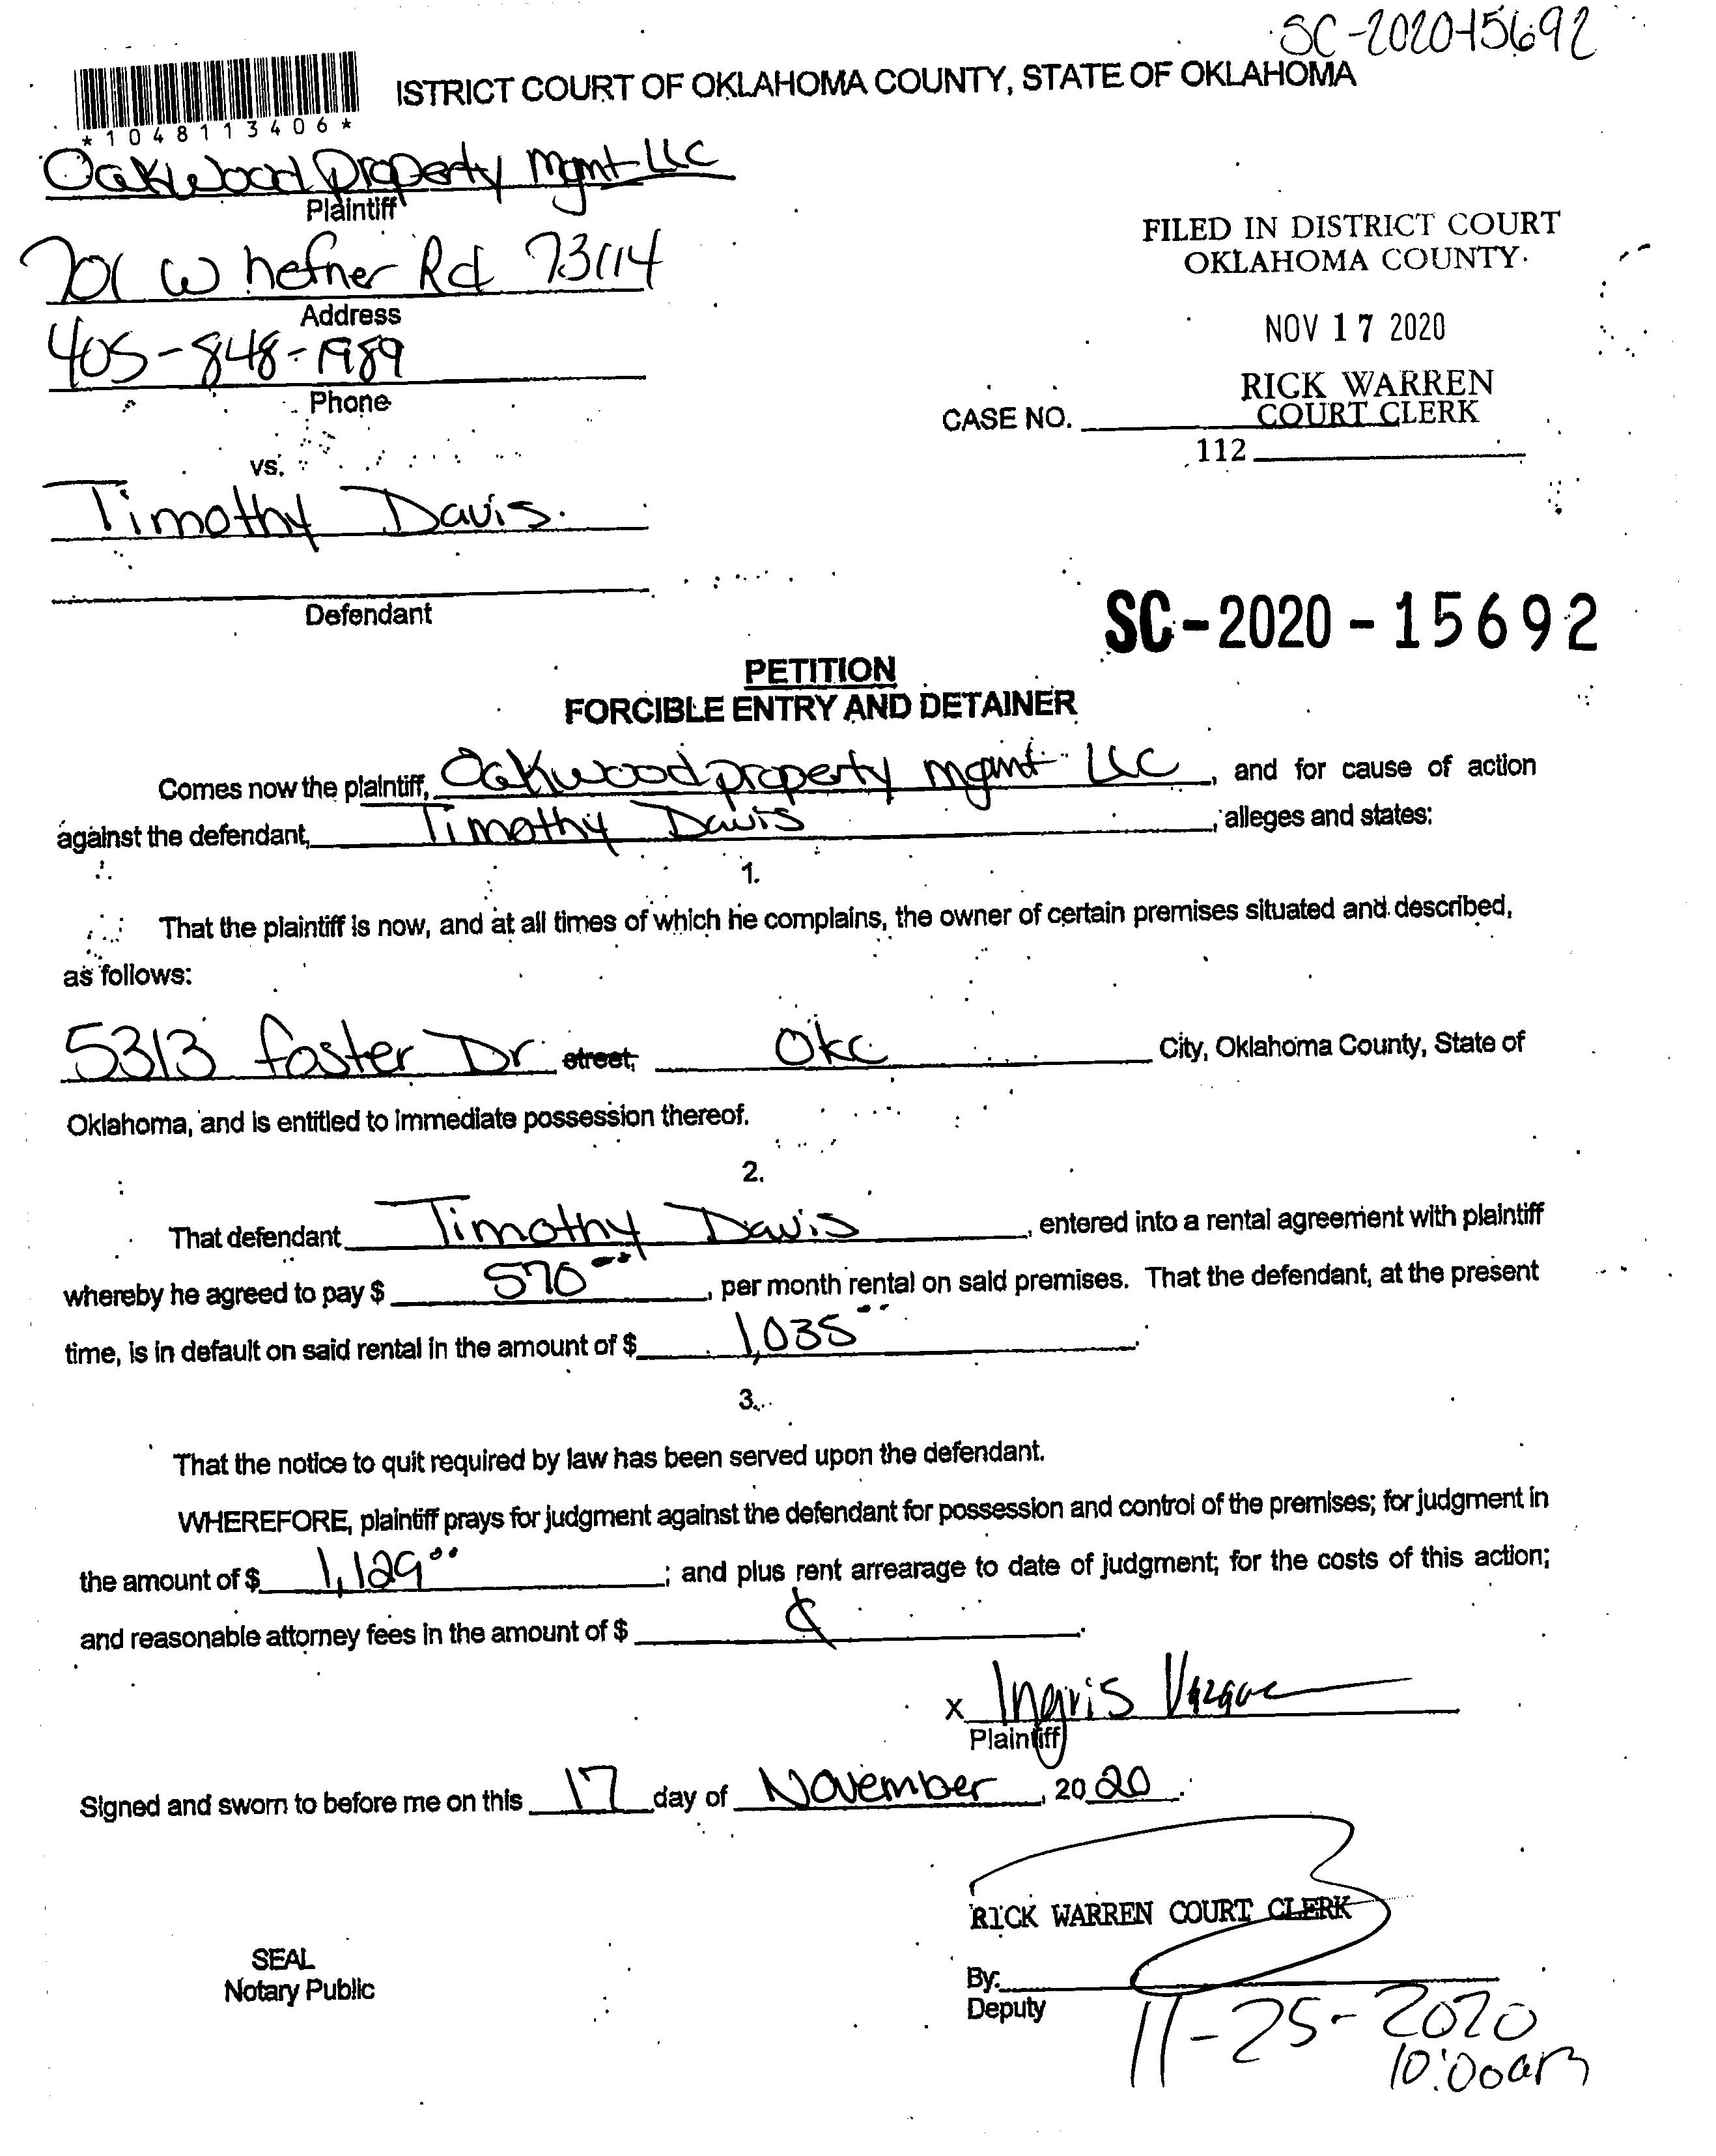 SC-2020-15692
ISTRICT COURT OF OKLAHOMA COUNTY, STATE OF OKLAHOMA
*1048113406*
Oakwood Property Mgmt LLC
Plaintiff
701 W hefner Rd 73114
Address
405-848-1989
Phone
FILED IN DISTRICT COURT
OKLAHOMA COUNTY
NOV 17 2020
RICK WARREN
COURT CLERK
CASE NO.
112
vs.
Timothy Davis
Defendant
SC-2020-15692
PETITION
FORCIBLE ENTRY AND DETAINER
Comes now the plaintiff, Oakwood property mgmt LLC, and for cause of action
against the defendant, Timothy Davis, alleges and states:
1.
That the plaintiff is now, and at all times of which he complains, the owner of certain premises situated and described,
as follows:
5313 foster Dr street, Okc City, Oklahoma County, State of
Oklahoma, and is entitled to immediate possession thereof.
2.
That defendant Timothy Davis, entered into a rental agreement with plaintiff
whereby he agreed to pay $ 570.00, per month rental on said premises. That the defendant, at the present
time, is in default on said rental in the amount of $ 1,035.00.
3.
That the notice to quit required by law has been served upon the defendant.
WHEREFORE, plaintiff prays for judgment against the defendant for possession and control of the premises; for judgment in
the amount of $ 1,129.00; and plus rent arrearage to date of judgment; for the costs of this action;
and reasonable attorney fees in the amount of $
X Ingris
Plaintiff
Signed and sworn to before me on this 17 day of November, 2020.
RICK WARREN COURT CLERK
SEAL
Notary Public
By:
Deputy
11-25-2020
10:00am